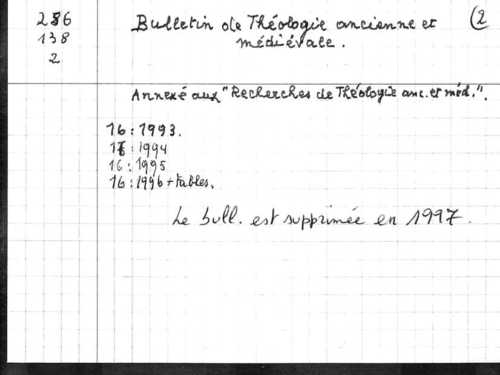 286
138
2
Bulletin de Théologie ancienne et
médiévale.
(2
Annexé aux "Recherches de Théologie anc. et méd.".
16 : 1993.
16 : 1994
16 : 1995
16 : 1996 + tables.
Le bull. est supprimée en 1997.